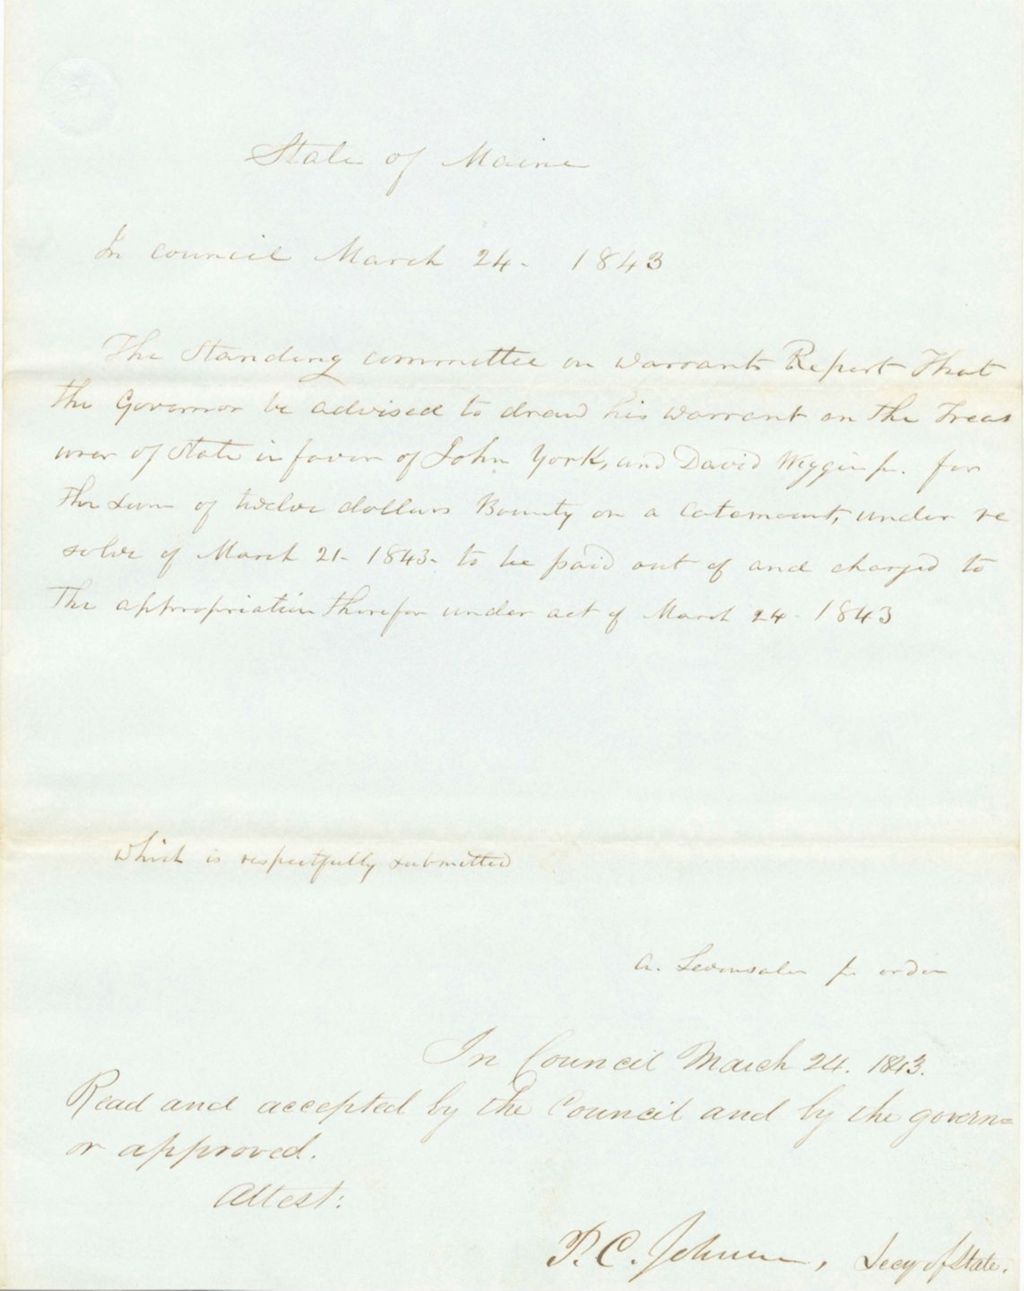 State of Maine
In council March 24 - 1843
The Standing committee on warrants Report That
the Governor be advised to draw his warrant on the Treas
urer of State in favor of John York, and David Wiggin jr. for
the sum of twelve dollars Bounty on a Catamount, under re
solve of March 21 - 1843 - to be paid out of and charged to
The appropriation therefor under act of March 24 - 1843
which is respectfully submitted
A. Levensaler pr order
In Council March 24. 1843.
Read and accepted by the Council and by the govern=
or approved.
Attest:
P. C. Johnson, Secy of State.